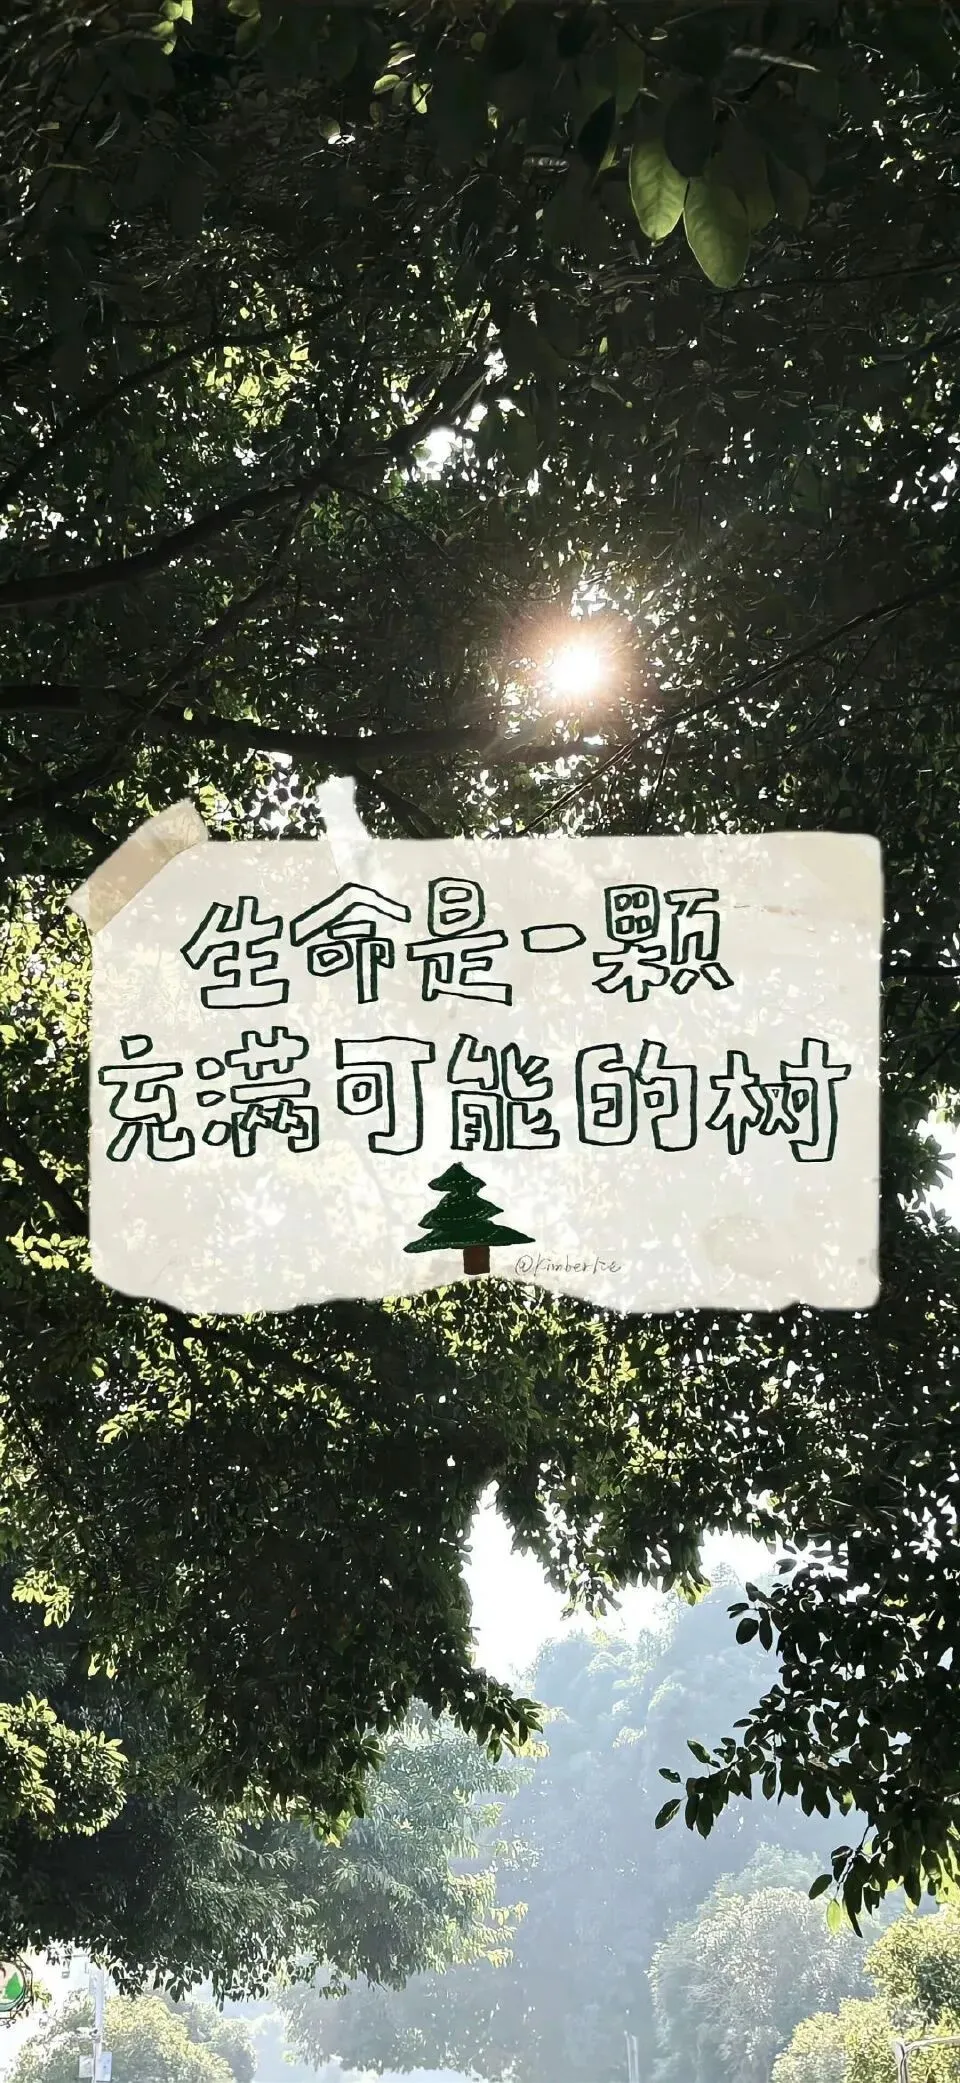 生命是一颗
充满可能的树
@Kimberlce